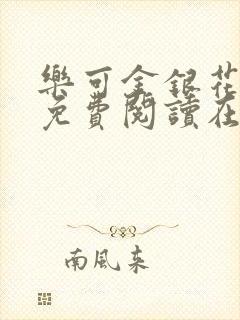 樂可金銀花
免費閱讀在
南風來